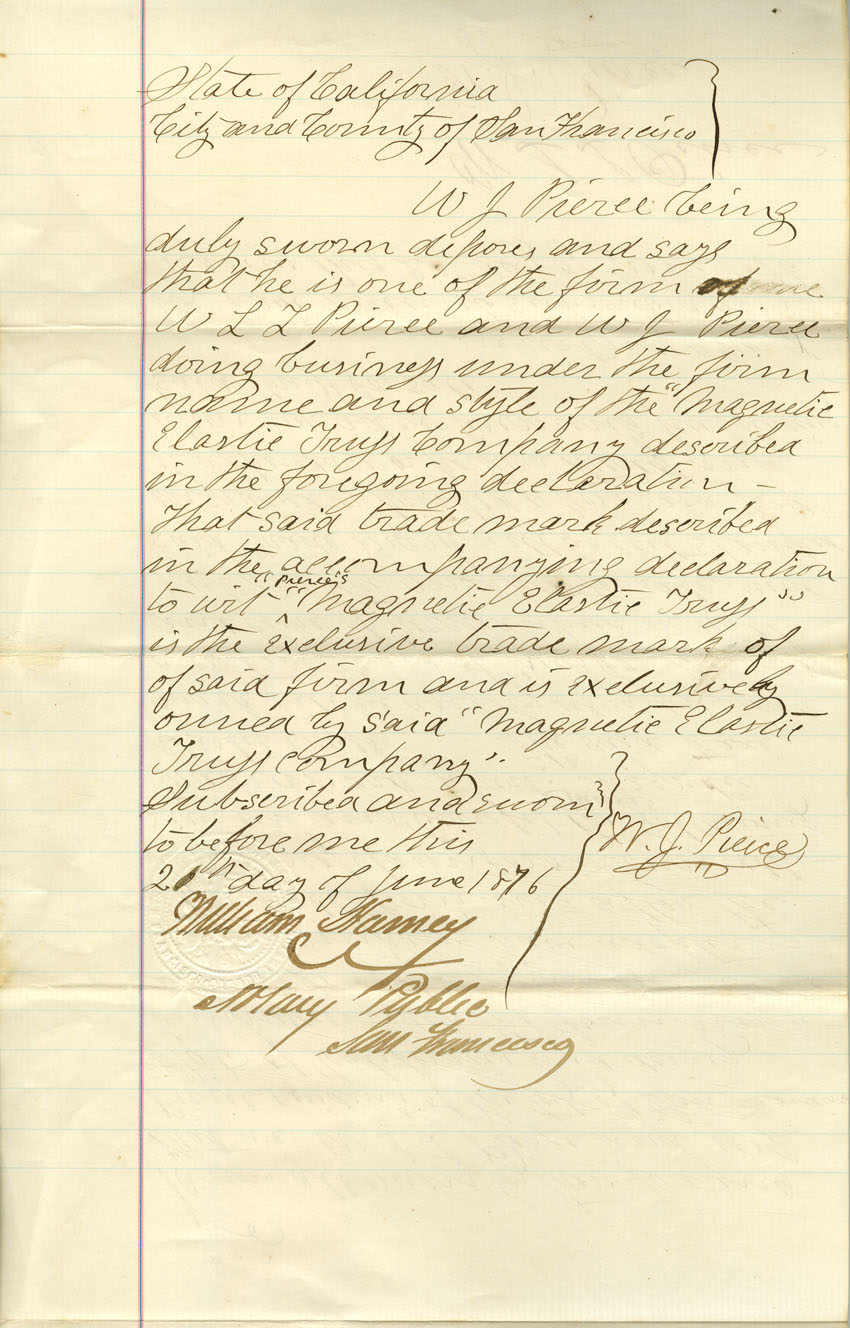 State of California
City and County of San Francisco
W J Pierce being
duly sworn deposes and says
that he is one of the firm of
W L L Pierce and W J Pierce
doing business under the firm
name and style of the "Magnetic
Elastic Truss Company described
in the foregoing declaration –
That said trade mark described
in the accompanying declaration
"Pierce's
to wit "Magnetic Elastic Truss""
is the exclusive trade mark of
of said firm and is exclusively
owned by said "Magnetic Elastic
Truss Company".
Subscribed and sworn
to before me this
W. J. Pierce
day of June 1876
William Harney
Notary Public
San Francisco